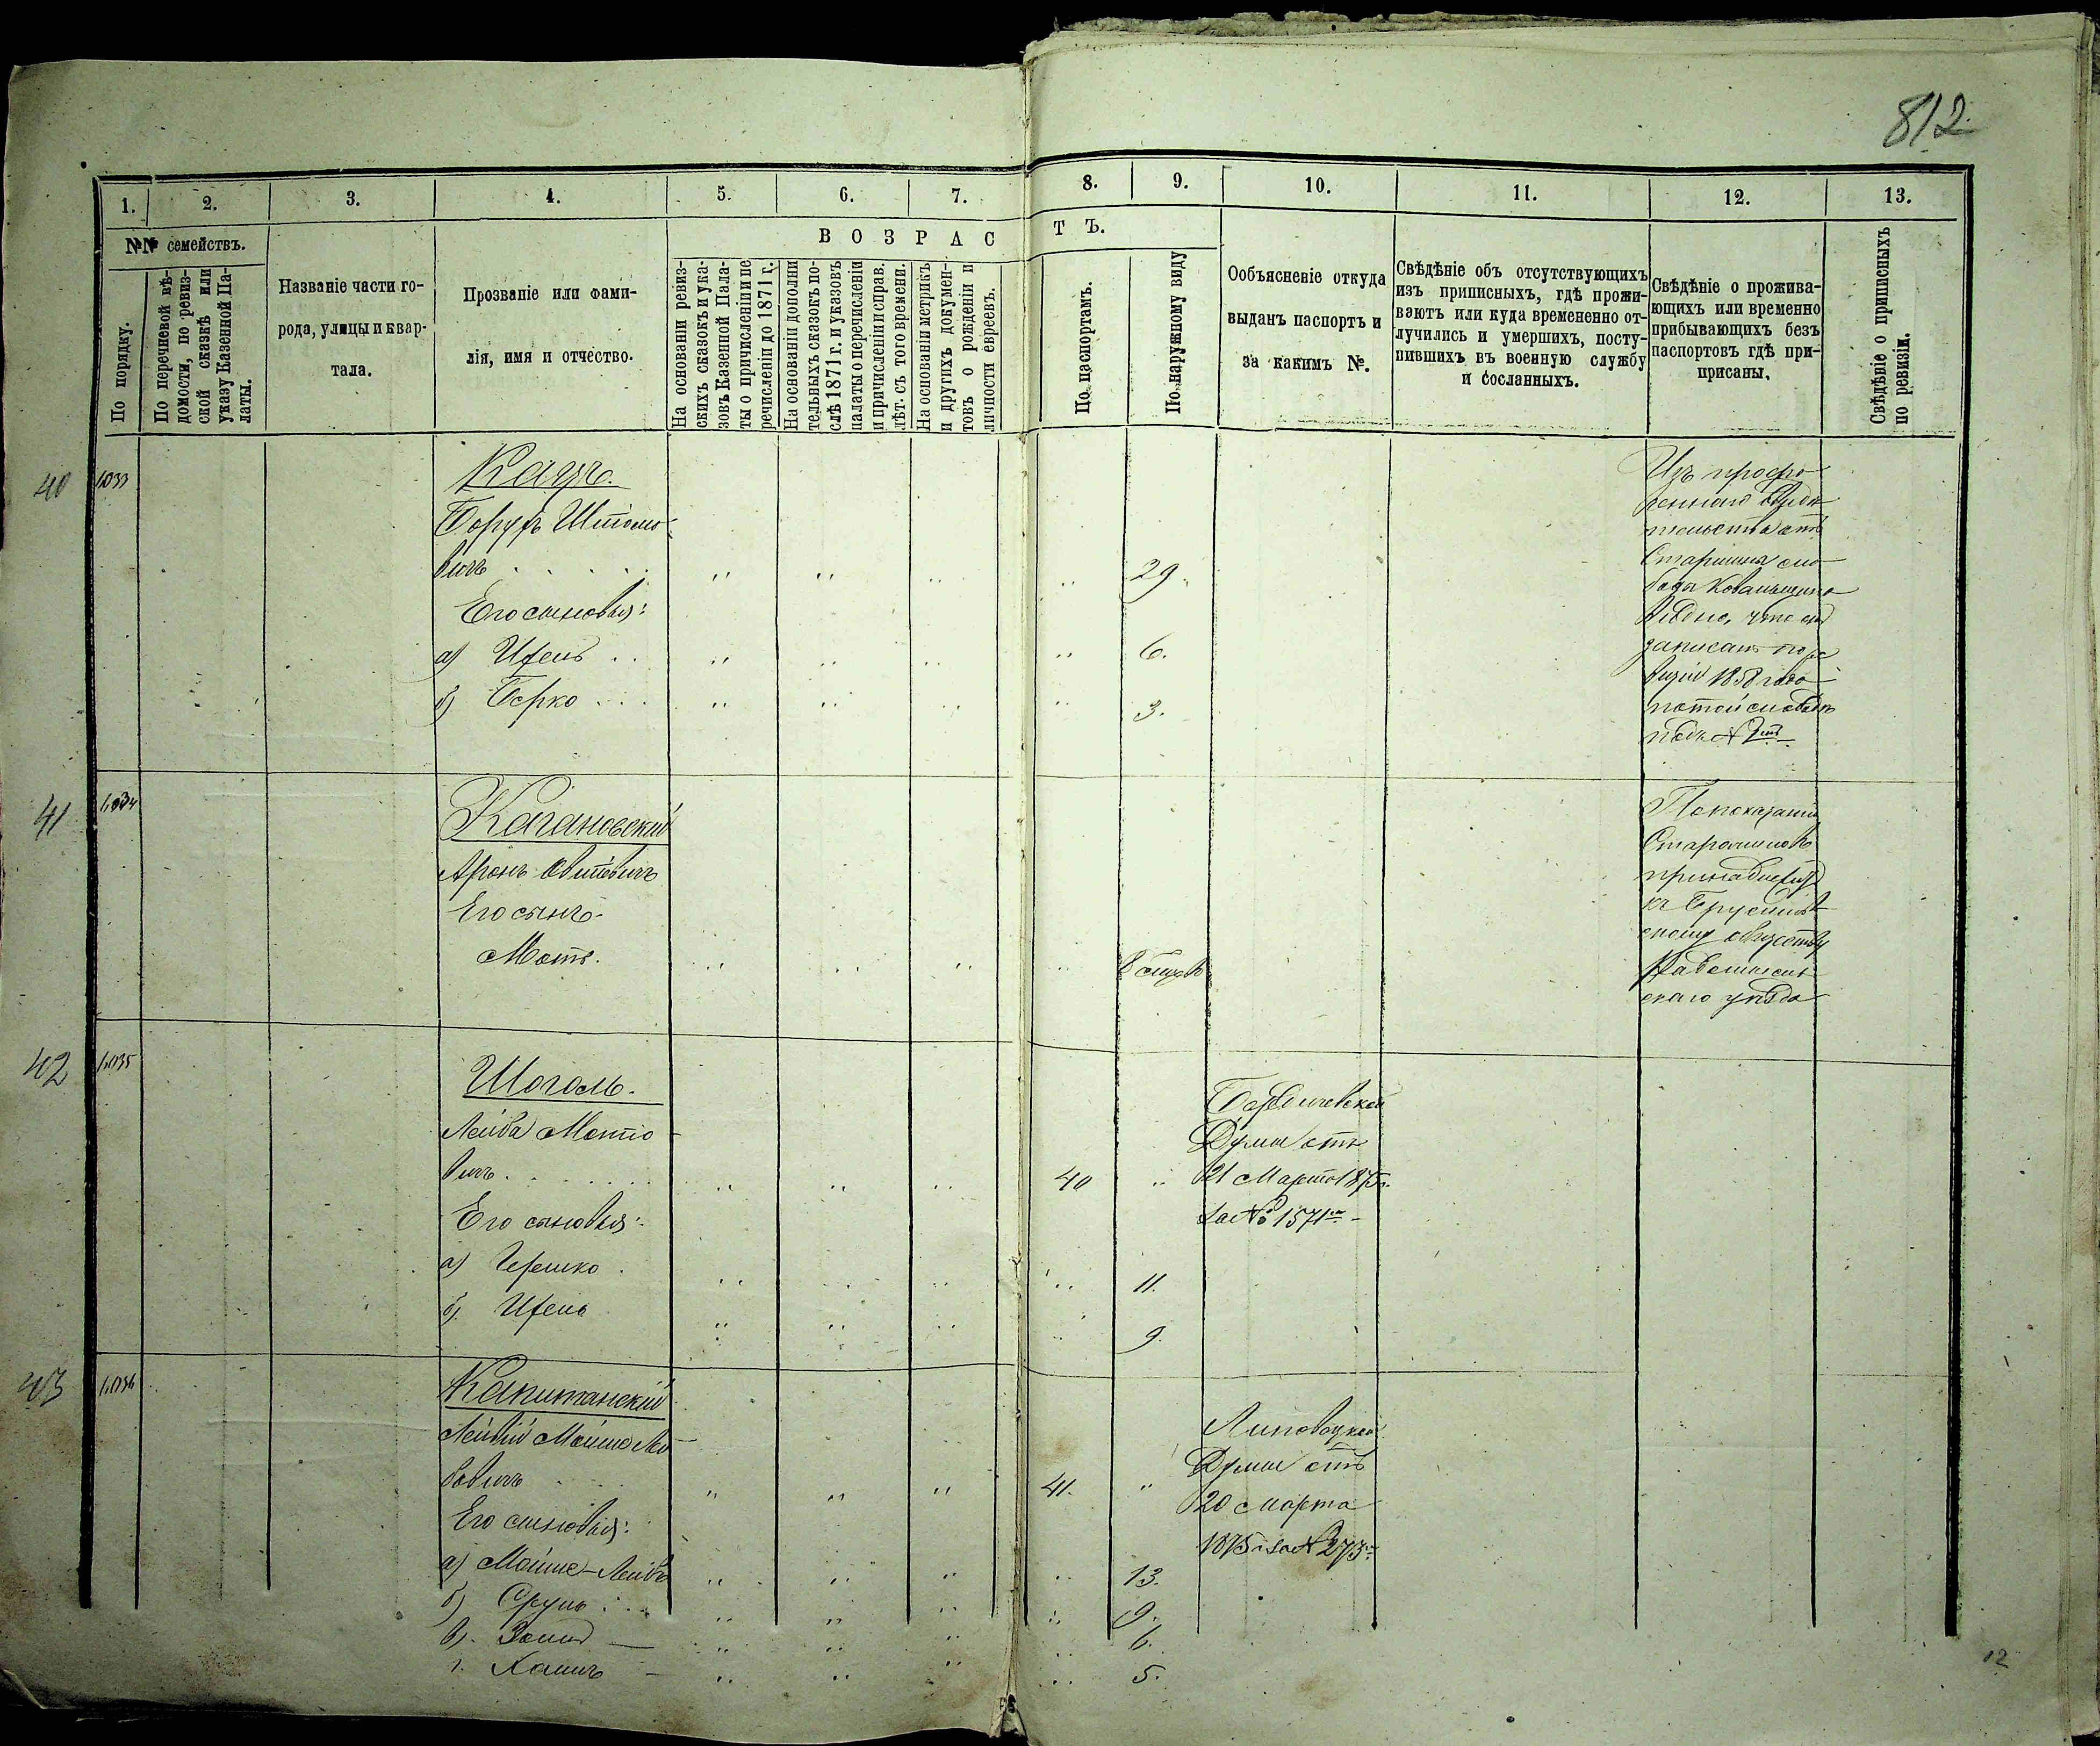 812
1.
2.
3.
4.
5.
6.
7.
8.
9.
10.
11.
12.
13.
№№ семействъ.
В О З Р А С
Т Ъ.
По порядку.
По перечневой вѣ-
домости, по ревиз-
ской сказкѣ или
указу Казенной Па-
латы.
Названіе части го-
рода, улицы и квар-
тала.
Прозваніе или фами-
лія, имя и отчество.
На основаніи ревиз-
скихъ сказокъ и ука-
зовъ Казенной Пала-
ты о причисленіи и пе
речисленіи до 1871 г.
На основаніи дополни
тельныхъ сказокъ по-
слѣ 1871 г. и указовъ
палаты о перечисленіи
и причисленіи и справ.
лѣт. съ того времени.
На основаніи метрикъ
и другихъ докумен-
товъ о рожденіи и
личности евреевъ.
По паспортамъ.
По наружному виду
Ообъясненіе откуда
выданъ паспортъ и
за какимъ №.
Свѣдѣніе объ отсутствующихъ
изъ приписныхъ, гдѣ прожи-
ваютъ или куда времененно от-
лучились и умершихъ, посту-
пившихъ въ военную службу
и сосланныхъ.
Свѣдѣніе о прожива-
ющихъ или временно
прибывающихъ безъ
паспортовъ гдѣ при-
присаны.
Свѣдѣніе о приписныхъ
по ревизіи.
40
1033
Кацъ.
Борухъ
вичъ
29
Его сыновья:
а)
6.
б) Берко
3.
Изъ
Старшины сло
боды
видно, что онъ
записанъ по ре
визіи 1858 года
по той слободѣ
41
1034
Кагановскій
Аронъ
Его сынъ
Мотъ.
По показанію
Старшиновъ
принадлежитъ
къ Брусилов
скому обществу
Радомысль
скаго уѣзда
42
1035
Шоголь.
Лейба Мотіо
вичъ
40
Его сыновья:
а) Гершко
11.
б)
9.
Бердичевской
Думы отъ
21 Марта 1875 г.
за № 1571
43
1036
Капитанскій
Мойше Лей
бовичъ
41.
Его сыновья:
а) Мойше-Лейба
13.
б) Сруль
9.
в)
6.
г. Хаимъ
5.
Липовецкой
Думы отъ
20 Марта
1875 г. за № 273
12